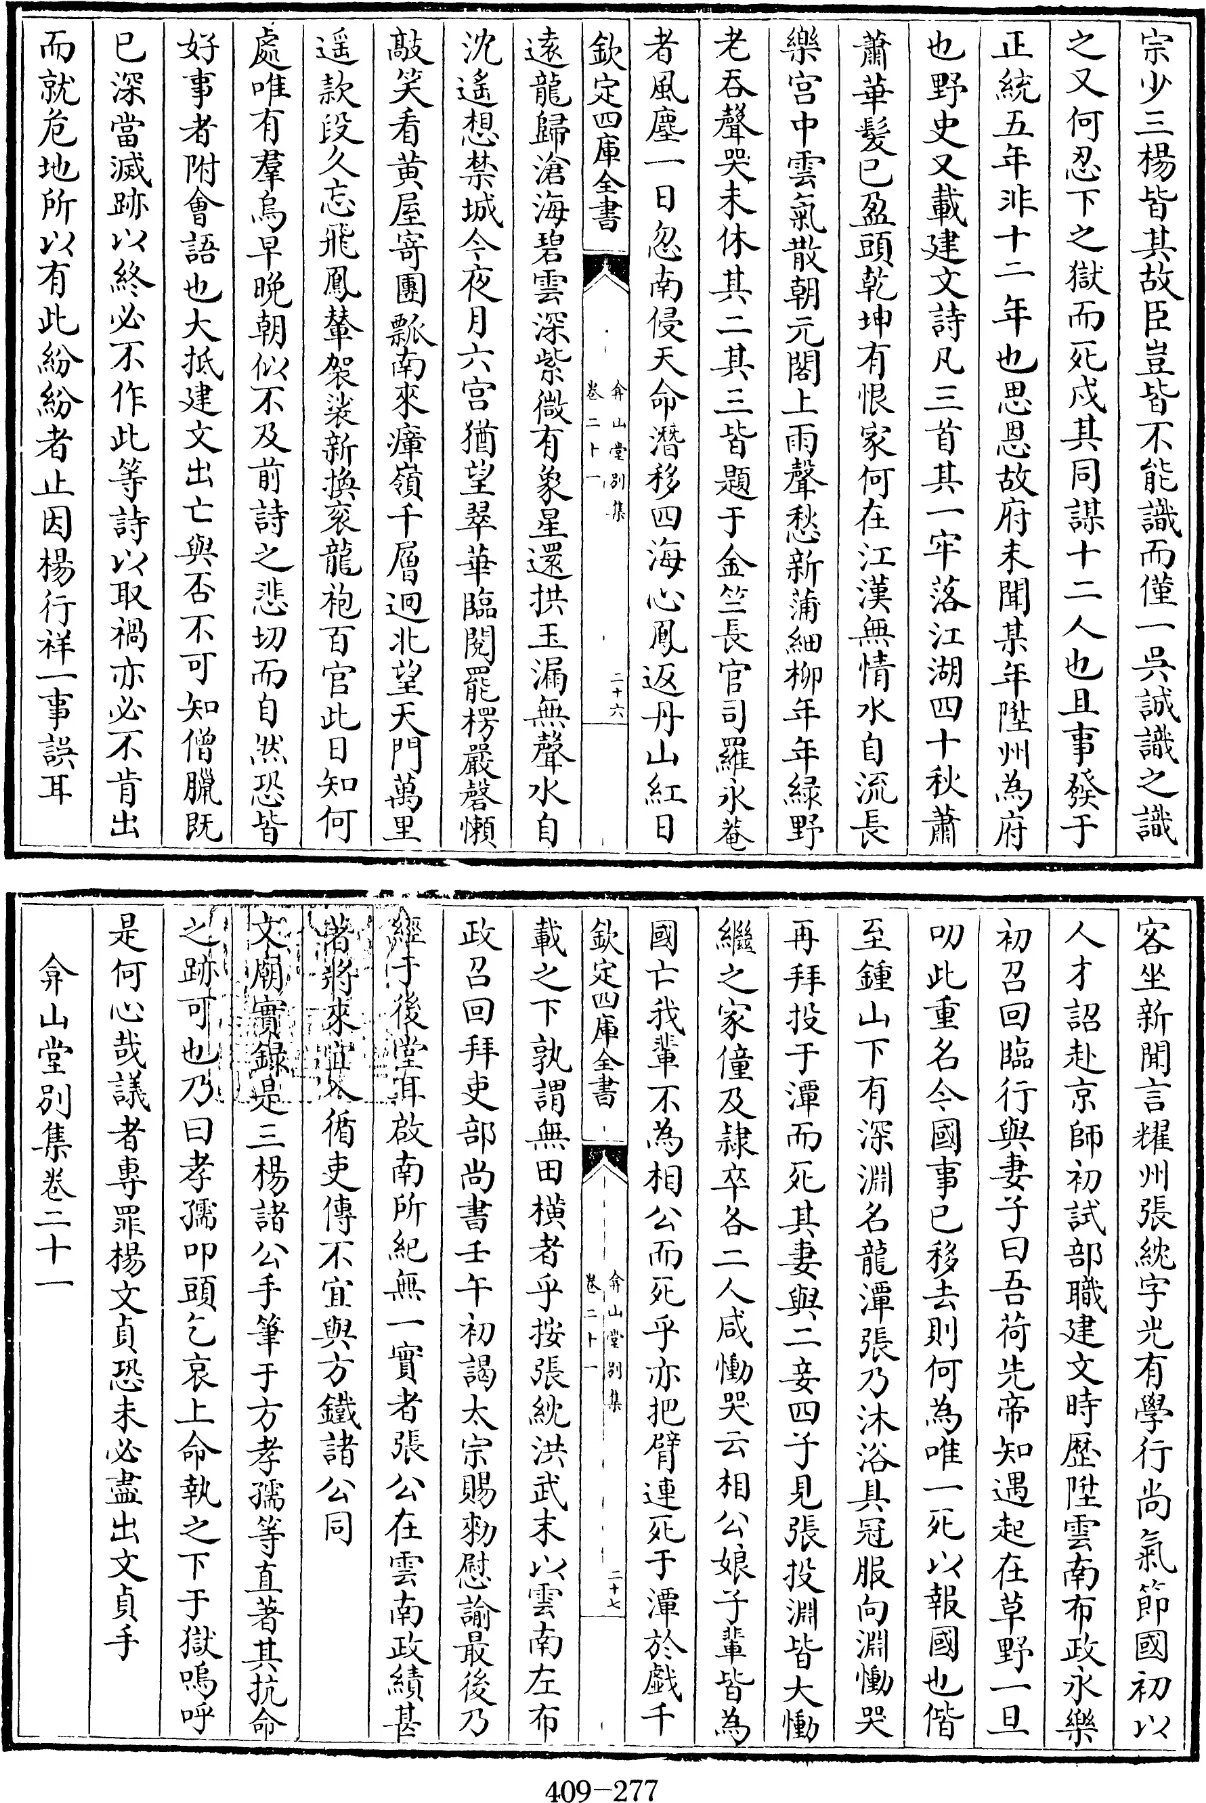 宗少三楊皆其故臣豈皆不能識而僅一吳誠識之識
之又何忍下之獄而死戍其同謀十二人也且事發于
正統五年非十二年也思恩故府未聞某年陞州為府
也野史又載建文詩凡三首其一牢落江湖四十秋蕭
蕭華髮已盈頭乾坤有恨家何在江漢無情水自流長
樂宮中雲氣散朝元閣上雨聲愁新蒲細柳年年緑野
老吞聲哭未休其二其三皆題于金竺長官司羅永菴
者風塵一日忽南侵天命潛移四海心鳳返丹山紅日
欽定四庫全書
弇山堂別集
卷二十一
二十六
逺龍歸滄海碧雲深紫微有象星還拱玉漏無聲水自
沈遙想禁城今夜月六宮猶望翠華臨閱罷楞嚴磬懶
敲笑看黄屋寄團瓢南來瘴嶺千層迥北望天門萬里
遥款段久忘飛鳳輦袈裟新換衮龍袍百官此日知何
處唯有羣烏早晚朝似不及前詩之悲切而自然恐皆
好事者附會語也大抵建文出亡與否不可知僧臘既
已深當滅跡以終必不作此等詩以取禍亦必不肯出
而就危地所以有此紛紛者止因楊行祥一事誤耳
客坐新聞言耀州張紞字光有學行尚氣節國初以
人才詔赴京師初試部職建文時歷陞雲南布政永樂
初召回臨行與妻子曰吾荷先帝知遇起在草野一旦
叨此重名今國事已移去則何為唯一死以報國也偕
至鍾山下有深淵名龍潭張乃沐浴具冠服向淵慟哭
再拜投于潭而死其妻與二妾四子見張投淵皆大慟
繼之家僮及隷卒各二人咸慟哭云相公娘子輩皆為
國亡我輩不為相公而死乎亦把臂連死于潭於戲千
欽定四庫全書
弇山堂別集
卷二十一
二十七
載之下孰謂無田橫者乎按張紞洪武末以雲南左布
政召回拜吏部尚書壬午初謁太宗賜勑慰諭最後乃
經于後堂耳啟南所紀無一實者張公在雲南政績甚
著將來宜入循吏傳不宜與方鐵諸公同
文廟實錄是三楊諸公手筆于方孝孺等直著其抗命
之跡可也乃曰孝孺叩頭乞哀上命執之下于獄嗚呼
是何心哉議者專罪楊文貞恐未必盡出文貞手
弇山堂別集卷二十一
409-277